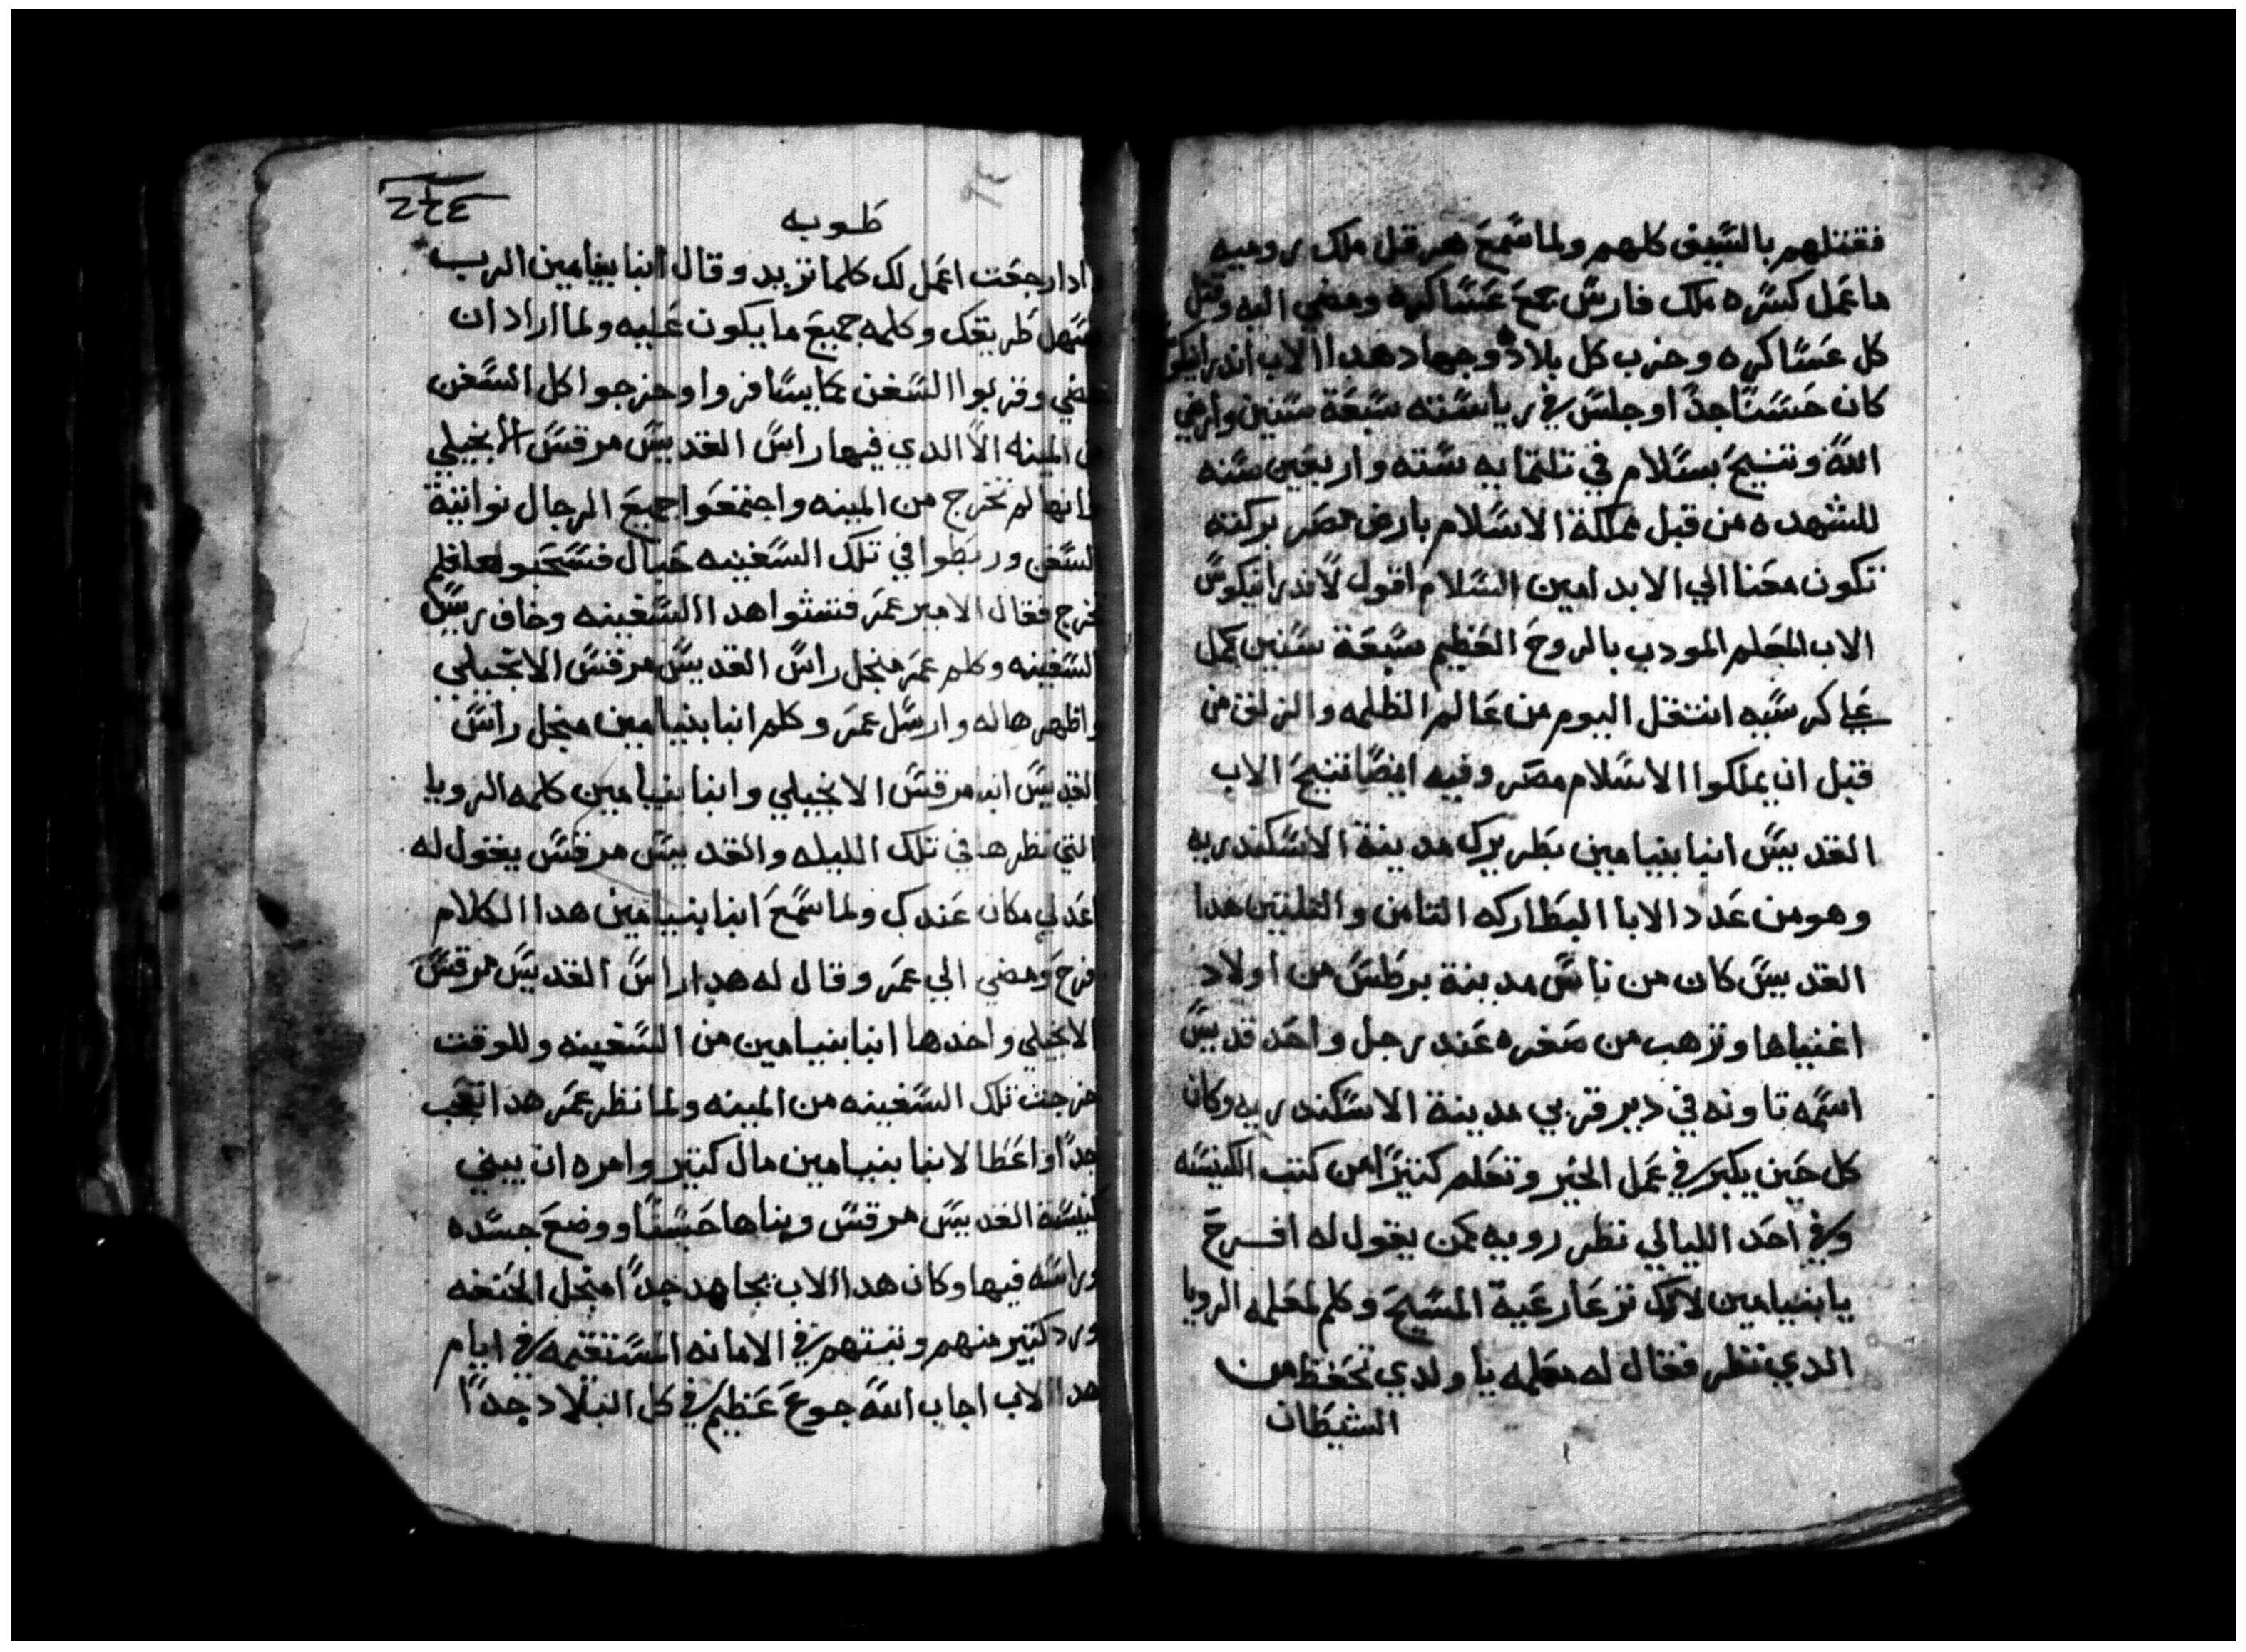 فقتلهم بالسيف كلهم ولما سمع هرقل ملك روميه
ما عمل كسره ملك فارس جمع عساكره ومضي اليه وقتل
كل عساكره وخرب كل بلاده وجهاد هدا الاب اندرانيكو
كان حسنًا جدًا وجلس في رياسته سبعة سنين وارضي
الله وتنيح بسلام في تلتمايه سته واربعين سنه
للشهده من قبل مملكة الاسلام بارض مصر بركته
تكون معنا الي الابد امين السلام اقول لاندرانيكوس
الاب المعلم المودب بالروح العظيم سبعة سنين كمل
علي كرسيه انتقل اليوم من عالم الظلمه والزلق من
قبل ان يملكوا الاسلام مصر وفيه ايضًا تنيح الاب
القديس انبا بنيامين بطريرك مدينة الاسكندريه
وهو من عدد الابا البطاركه التامن والتلتين هدا
القديس كان من ناس مدينة برطس من اولاد
اغنياها وترهب من صغره عند رجل واحد قديس
اسمه تاونه في دير قريب مدينة الاسكندريه وكان
كل حين يكبر في عمل الخير وتعلم كتيرًا من كتب الكنيسه
وفي احد الليالي نظر رويه كمن يقول له افرح
يا بنيامين لانك ترعا رعية المسيح وكلم لمعلمه الرويا
الدي نظر فقال له معلمه يا ولدي تحفظ من
الشيطان
٢٤٤
طوبه
ادا رجعت اعمل لك كلما تريد وقال انبا بنيامين الرب
يسهل طريقك وكلمه جميع ما يكون عليه ولما اراد ان
يمضي وقربوا السفن كما يسافروا وخرجوا كل السفن
من المينه الا الدي فيها راس القديس مرقس الانجيلي
فانها لم تخرج من المينه واجتمعوا جميع الرجال نواتية
السفن وربطوا في تلك السفينه حبال فسحبوها فلم
تخرج فقال الامير عمر فتشوا هدا السفينه وخاف رييس
السفينه وكلم عمر منجل راس القديس مرقس الانجيلي
واظهرها له وارسل عمر وكلم انبا بنيامين منجل راس
القديس انبا مرقس الانجيلي وانبا بنيامين كلمه الرويا
التي نظرها في تلك الليله والقديس مرقس يقول له
اعد لي مكان عندك ولما سمع انبا بنيامين هدا الكلام
فرح ومضي الي عمر وقال له هدا راس القديس مرقس
الانجيلي واخدها انبا بنيامين من السفينه وللوقت
خرجت تلك السفينه من المينه ولما نظر عمر هدا تعجب
جدًا واعطا لانبا بنيامين مال كتير وامره ان يبني
كنيسة القديس مرقس وبناها حسنًا ووضع جسده
وراسه فيها وكان هدا الاب يجاهد جدًا منجل الحنفه
ورد كتير منهم وتبتهم في الامانه المستقيمه في ايام
هدا الاب اجاب الله جوع عظيم في كل البلاد جدًا